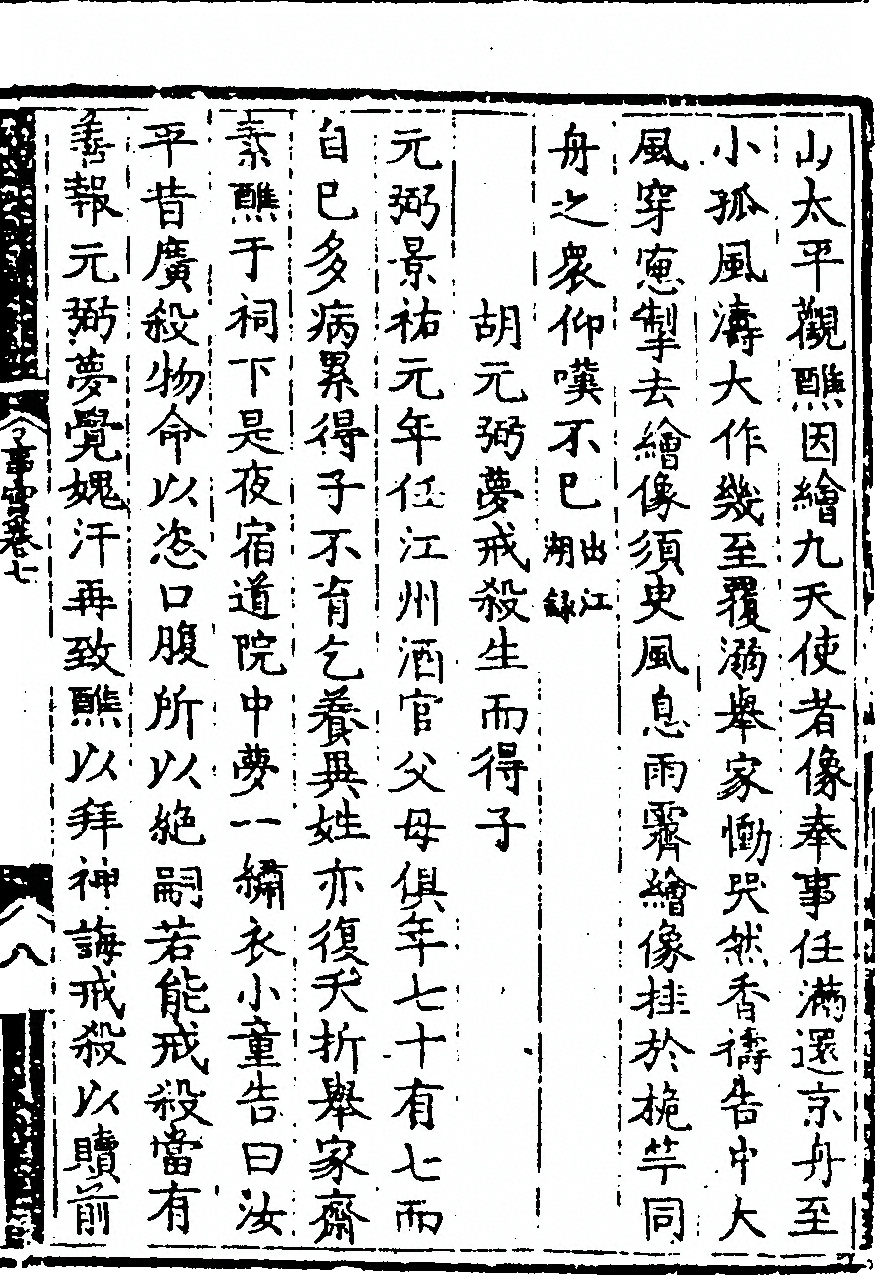 山太平觀醮因繪九天使者像奉事任滿還京舟至
小孤風濤大作幾至覆溺舉家慟哭然香禱告中大
風穿窻掣去繪像須臾風息雨霽繪像挂於桅竿同
舟之衆仰嘆不已出江湖録
胡元弼夢戒殺生而得子
元弼景祐元年任江州酒官父母俱年七十有七而
自已多病累得子不育乞養異姓亦復夭折舉家齋
素醮于祠下是夜宿道院中夢一繡衣小童告曰汝
平昔廣殺物命以恣口腹所以絶嗣若能戒殺當有
善報元弼夢覺媿汗再致醮以拜神誨戒殺以贖前
事實卷七
八